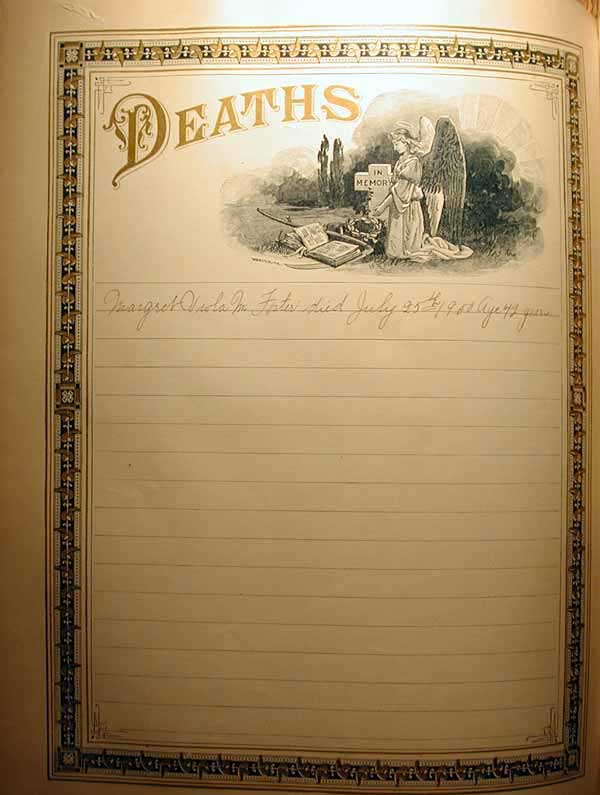 DEATHS
IN
MEMORY
Margret Viola M. Foster died July 25th 1900 Age 42 years